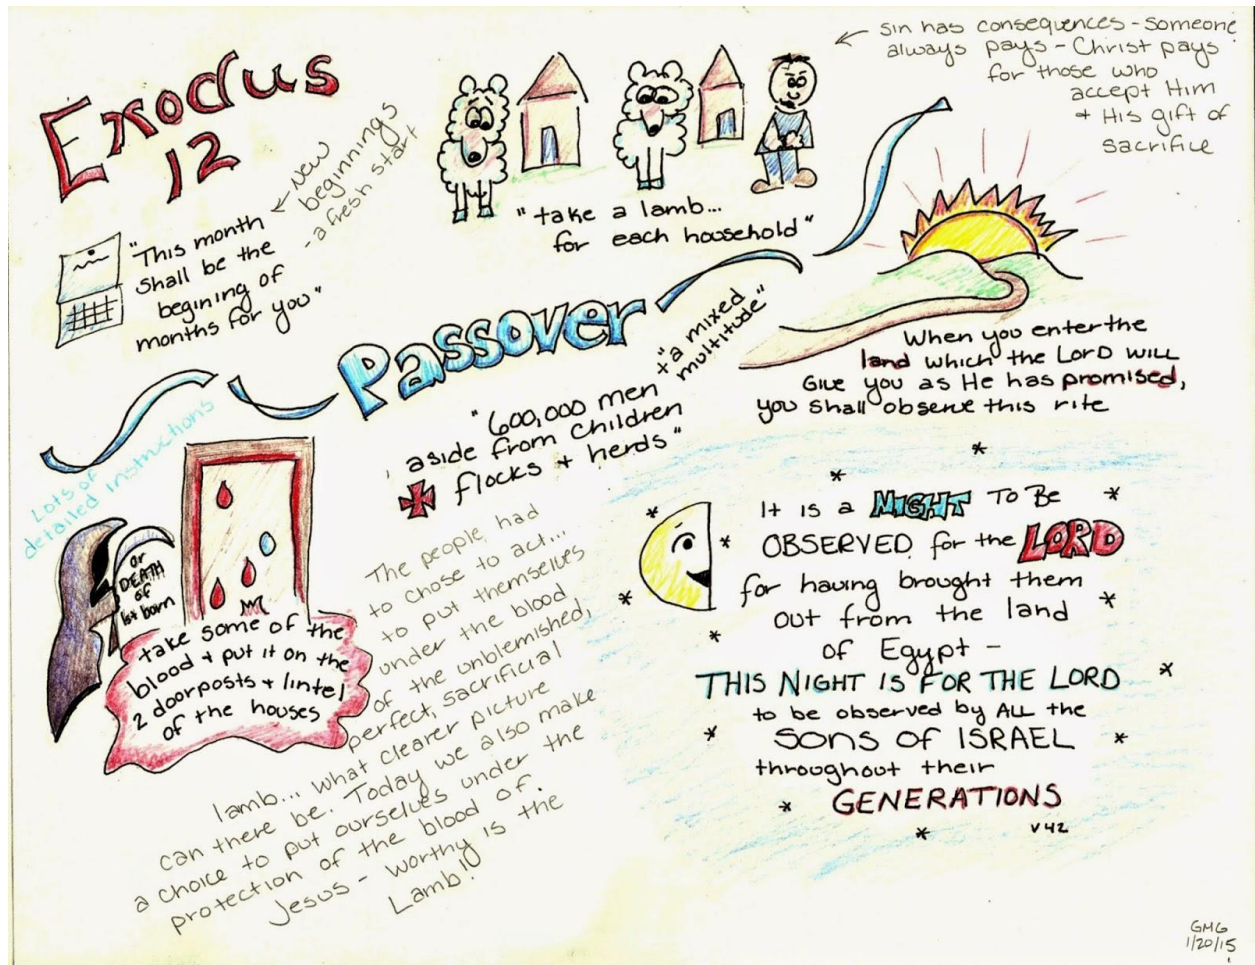 Exodus
12
← New
beginnings
- a fresh start
"This month
shall be the
begining of
months for you"
"take a lamb...
for each household"
← sin has consequences - someone
always pays - Christ pays
for those who
accept Him
+ His gift of
sacrifice
Passover
"600,000 men
aside from children
flocks + herds"
+ "a mixed
multitude"
When you enter the
land which the LORD will
Give you as He has promised,
you shall observe this rite
Lots of
detailed instructions
or
DEATH
of
1st born
take some of the
blood + put it on the
2 doorposts + lintel
of the houses
The people had
to chose to act...
to put themselves
under the blood
of the unblemished,
perfect, sacrificial
lamb... what clearer picture
can there be. Today we also make
a choice to put ourselves under the
protection of the blood of.
Jesus - worthy is the
Lamb!
It is a NIGHT TO BE
OBSERVED for the LORD
for having brought them
out from the land
of Egypt -
THIS NIGHT IS FOR THE LORD
to be observed by ALL the
SONS OF ISRAEL
throughout their
GENERATIONS
v 42
GMG
1/20/15